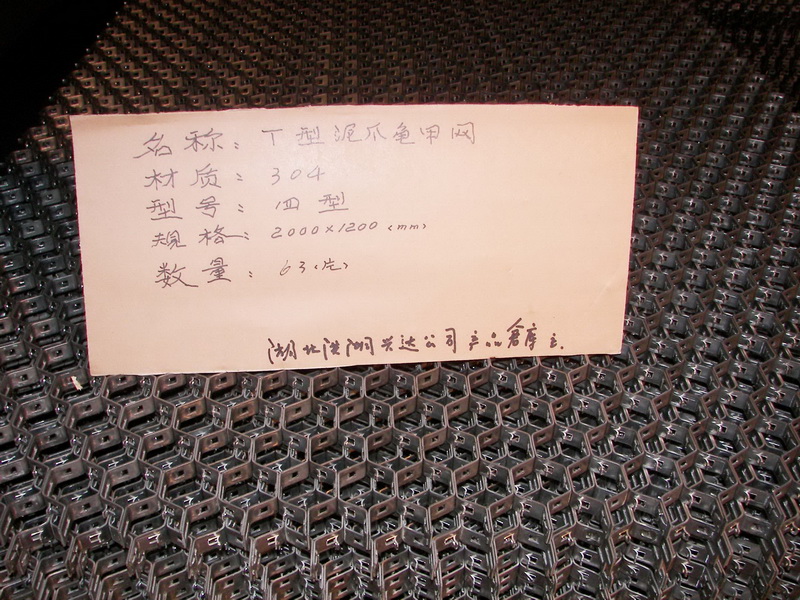 名称：T型泥爪龟甲网
材质：304
型号：四型
规格：2000×1200(mm)
数量：63(片)
湖北洪湖兴达公司产品仓库